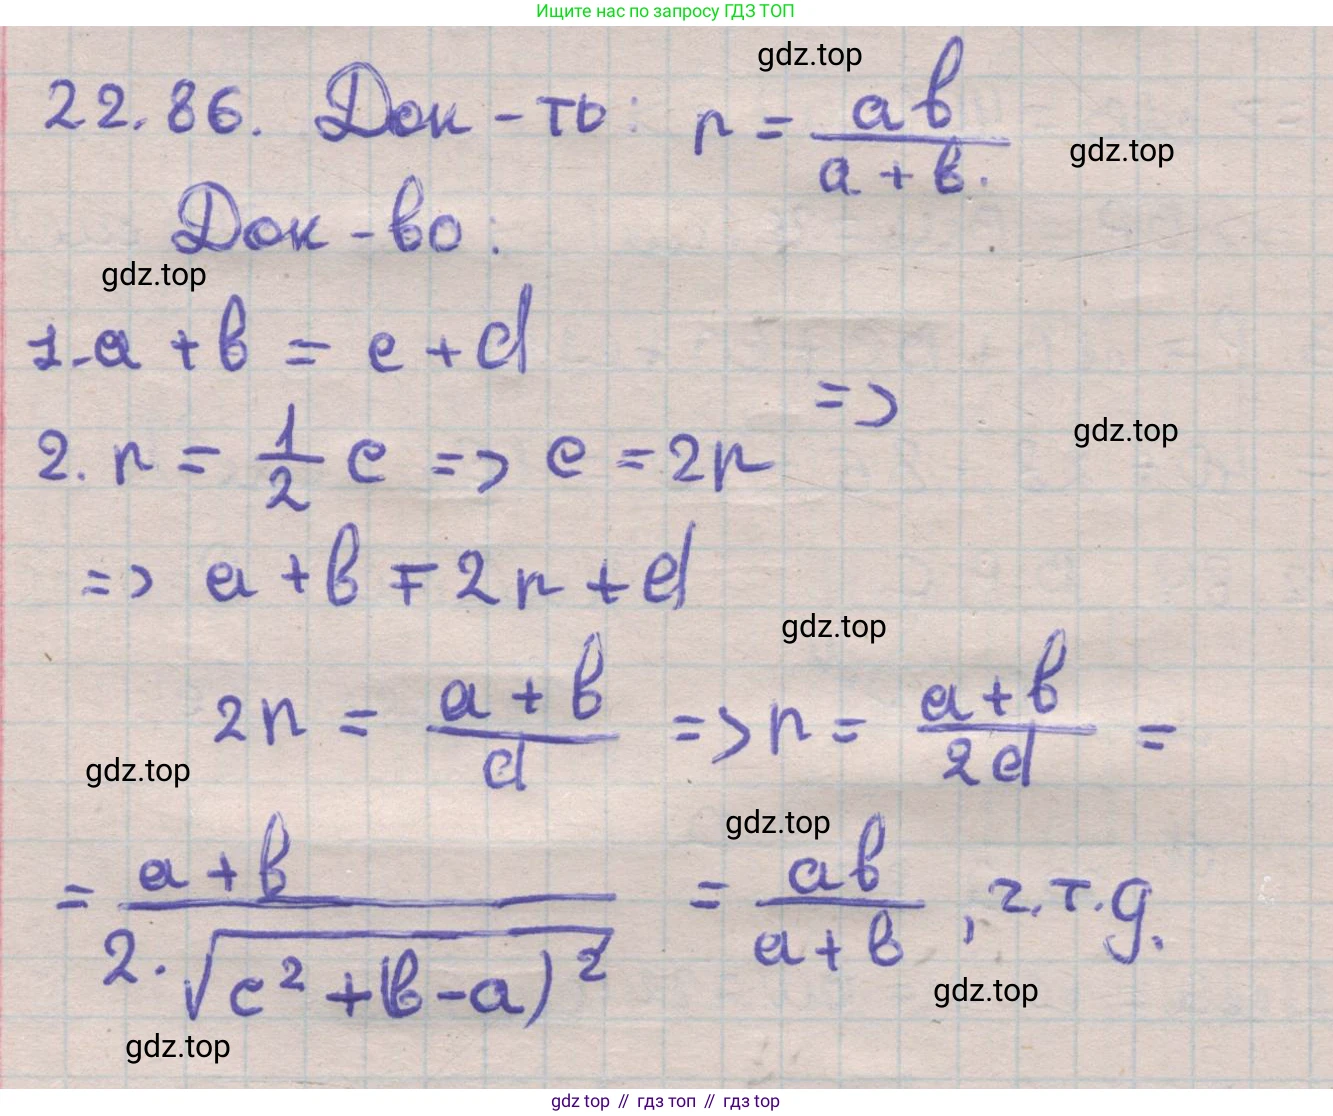 Ищите нас по запросу ГДЗ ТОП
gdz.top
22.86. Док-ть: r = ab / a + b.
gdz.top
Док-во:
gdz.top
1. a + b = c + d
=>
gdz.top
2. r = 1/2 c => c = 2r
=> a + b = 2r + d
gdz.top
2r = a + b / d => r = a + b / 2d =
gdz.top
gdz.top
= a + b / 2 · √c² + (b - a)² = ab / a + b, ч.т.д.
gdz.top
gdz.top
gdz top // гдз топ // gdz top